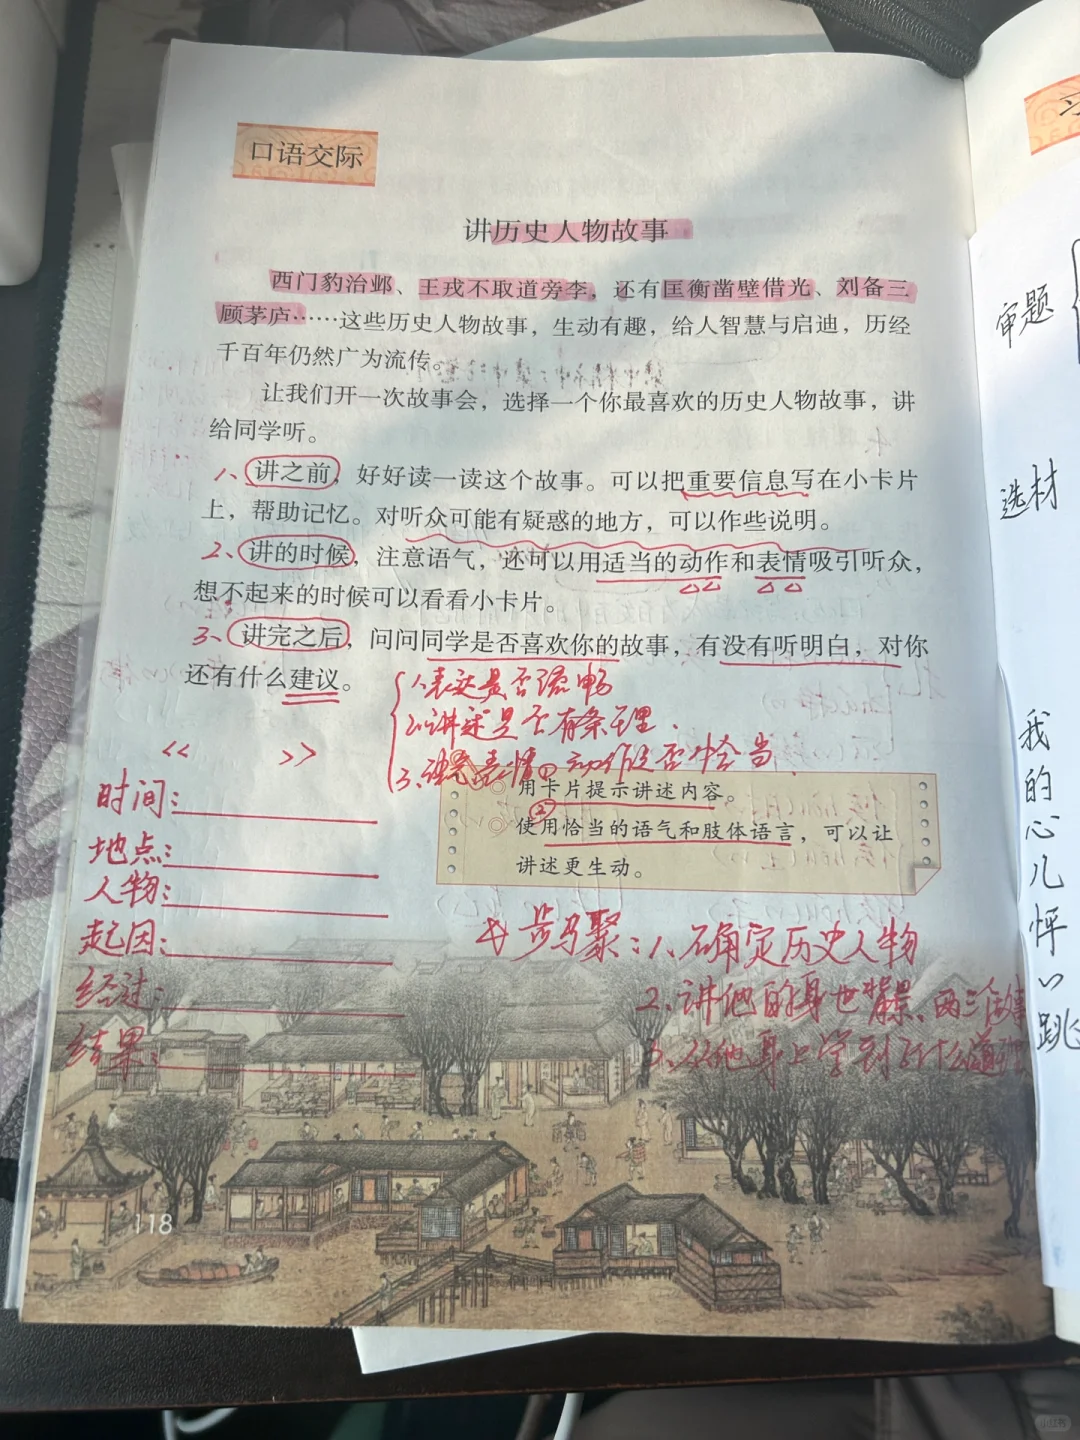 口语交际
讲历史人物故事
西门豹治邺、王戎不取道旁李，还有匡衡凿壁借光、刘备三
顾茅庐……这些历史人物故事，生动有趣，给人智慧与启迪，历经
千百年仍然广为流传。
让我们开一次故事会，选择一个你最喜欢的历史人物故事，讲
给同学听。
1、讲之前，好好读一读这个故事。可以把重要信息写在小卡片
上，帮助记忆。对听众可能有疑惑的地方，可以作些说明。
2、讲的时候，注意语气，还可以用适当的动作和表情吸引听众，
想不起来的时候可以看看小卡片。
3、讲完之后，问问同学是否喜欢你的故事，有没有听明白，对你
还有什么建议。
1.表达是否流畅
2.讲述是否有条理.
3.语气表情、动作是否恰当.
《 》
时间：
地点：
人物：
起因：
经过：
结果：
①用卡片提示讲述内容。
②使用恰当的语气和肢体语言，可以让
讲述更生动。
步骤：1.确定历史人物
2.讲他的身世背景、两三个故事
3.从他身上学到了什么道理
118
审题
选材
我的心儿怦怦跳
小红书